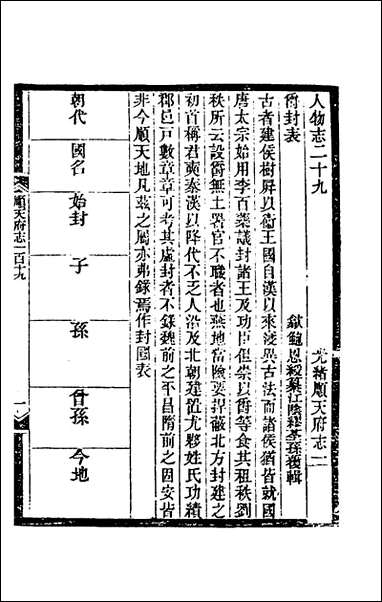 人物志二十九　光緒順天府志一百十九
爵封表　歙鮑恩綬纂江陰繆荃孫復輯
古者建侯樹屏以衞王國自漢以來浸異古法而諸侯猶皆就國
唐太宗始用李百藥議封諸王及功臣但崇以爵等食其租秩劉
秩所云設爵無土署官不職者也燕地當險要捍蔽北方封建之
初首稱君奭泰漢以降代不乏人沿及北朝建置尤夥姓氏功績
郡邑戸數章章可考其虛封者不錄魏前之平昌隋前之固安皆
非今順天地凡茲之屬亦弗錄焉作封國表
朝代　國名　始封　子　孫　曾孫　今地
順天府志一百十九　一